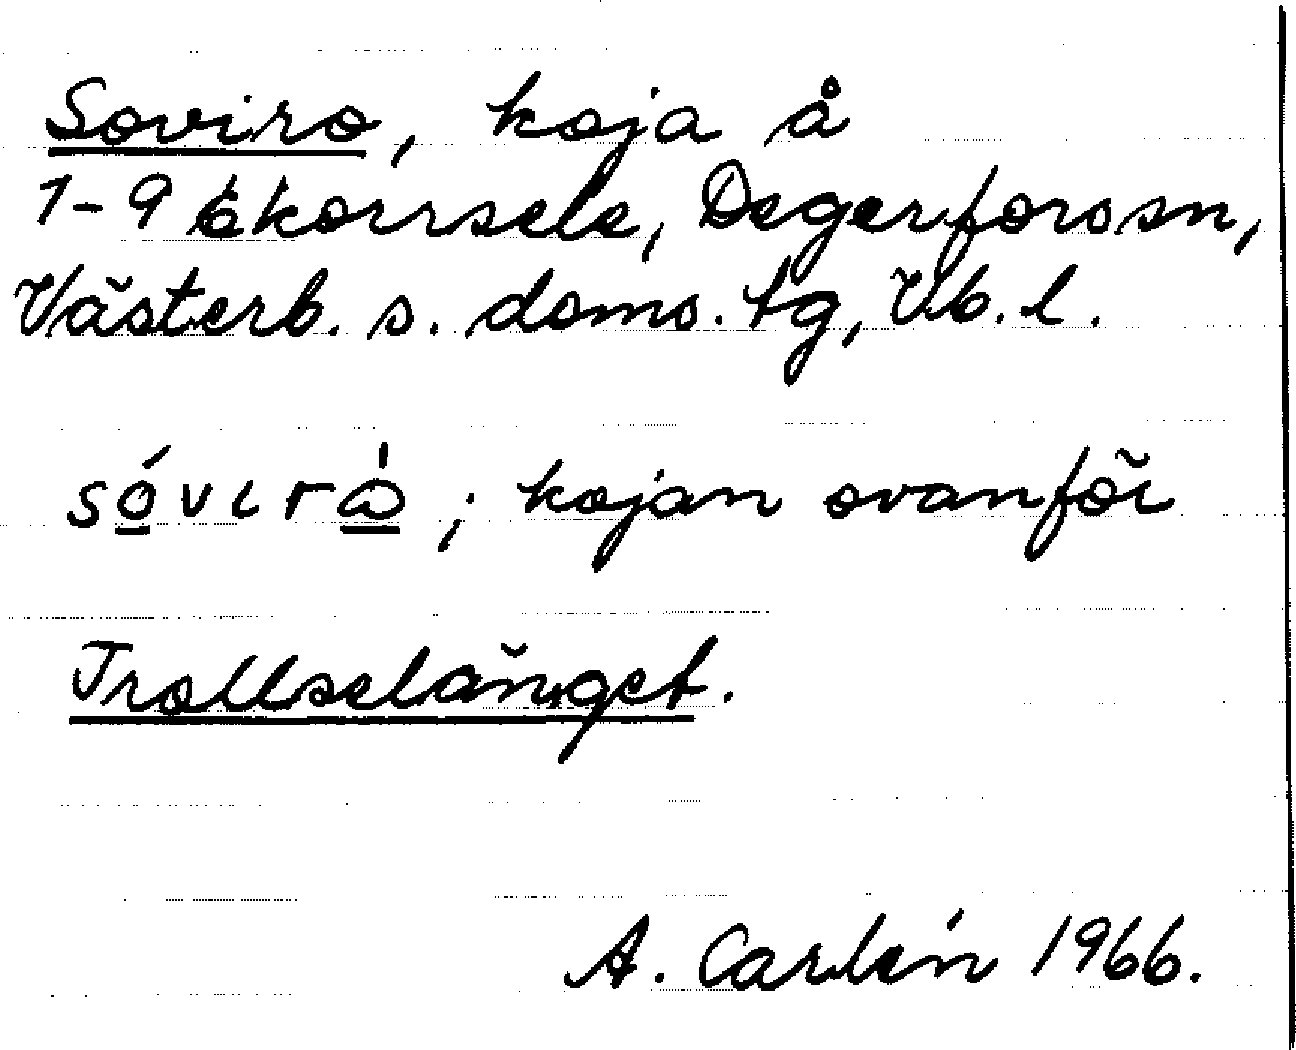 Soviro, koja å
1-9 Ekorrsele, Degerforssn,
Västerb. s. doms. tg, Vb. l.
sóvɩrå̀; kojan ovanför
Trollselånget.
A. Carlén 1966.